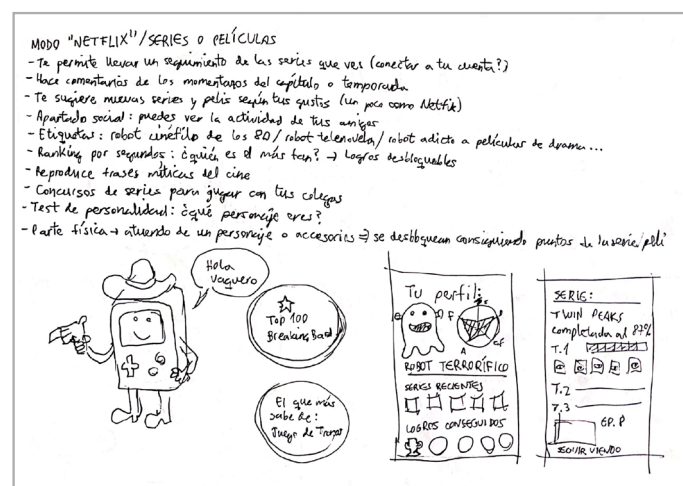 MODO "NETFLIX"/SERIES O PELÍCULAS
- Te permite llevar un seguimiento de las series que ves (conectar a tu cuenta?)
- Hace comentarios de los momentazos del capítulo o temporada
- Te sugiere nuevas series y pelis según tus gustos (un poco como Netflix)
- Apartado social: puedes ver la actividad de tus amigos
- Etiquetas: robot cinéfilo de los 80/robot telenovela/robot adicto a películas de drama...
- Ranking por segundos: ¿quién es el más fan? → Logros desbloqueables
- Reproduce frases míticas del cine
- Concursos de series para jugar con tus colegas
- Test de personalidad: ¿qué personaje eres?
- Parte física → atuendo de un personaje o accesorios ⇒ se desbloquean consiguiendo puntos de la serie/peli
Hola
vaquero
Top 100
Breaking Bad
El que más
sabe de:
Juego de Tronos
Tu perfil:
F
A
CF
ROBOT TERRORÍFICO
SERIES RECIENTES
LOGROS CONSEGUIDOS
SERIE:
TWIN PEAKS
completada al 87%
T.1
T.2
T.3
EP. 8
SEGUIR VIENDO